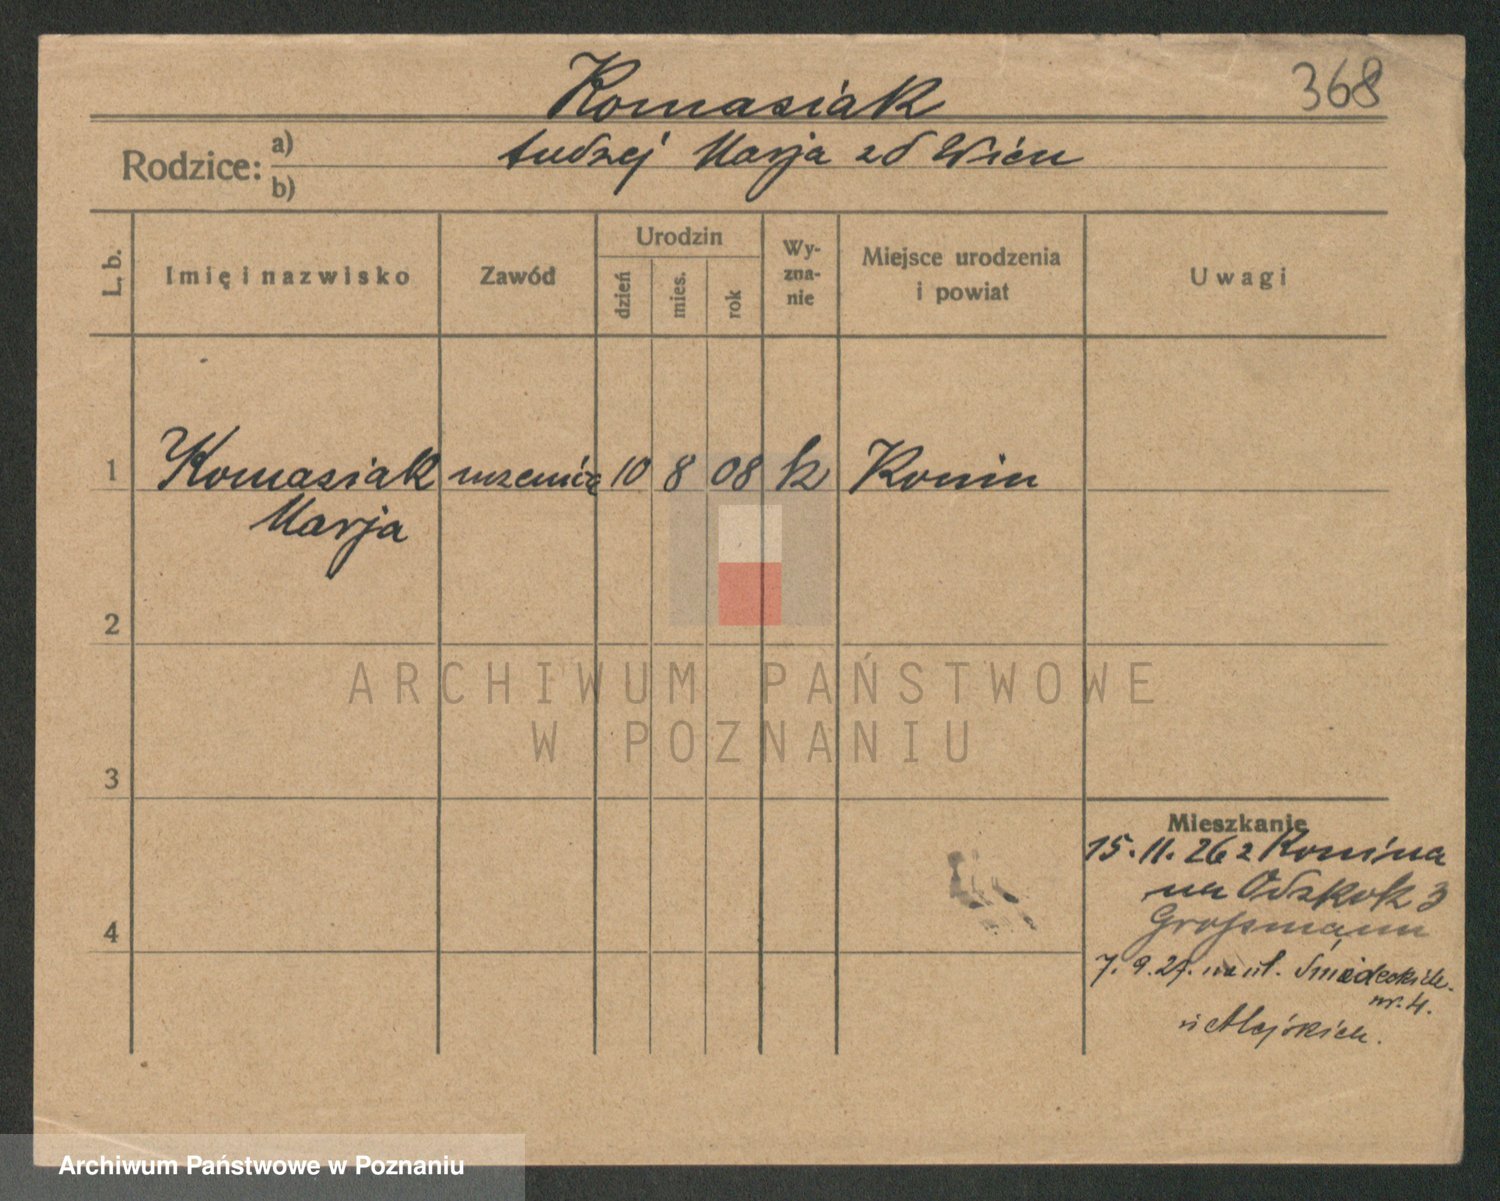 Komasiak
368
Rodzice: a) Andrzej Marja zd Wicu
b)
L. b. Imię i nazwisko Zawód Urodzin dzień mies. rok Wyzna-nie Miejsce urodzenia i powiat Uwagi
1 Komasiak uczenica 10 8 08 k Konin
Marja
2
3
4
Mieszkanie
15. 11. 26 z Konina
na Odskok 3
Grossmann
7. 9. 27. na ul. Śniadeckich
nr. 4.
ARCHIWUM PAŃSTWOWE
W POZNANIU
Archiwum Państwowe w Poznaniu